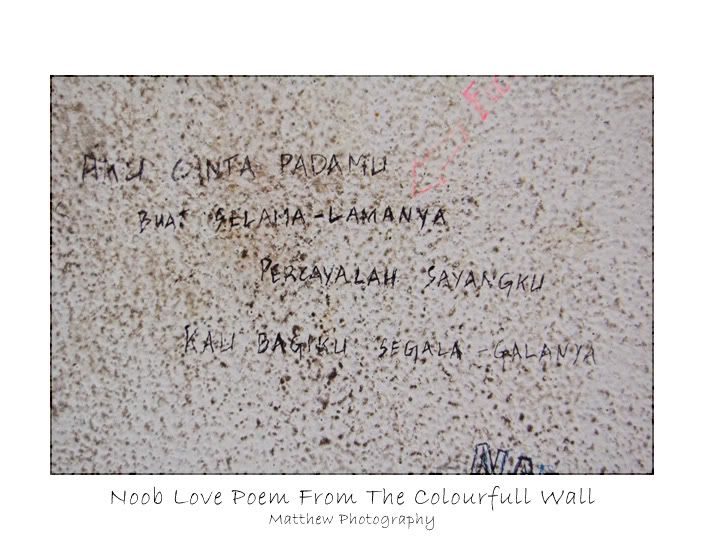 AKU CINTA PADAMU
BUAT SELAMA-LAMANYA
PERCAYALAH SAYANGKU
KAU BAGIKU SEGALA-GALANYA
Noob Love Poem From The Colourfull Wall
Matthew Photography